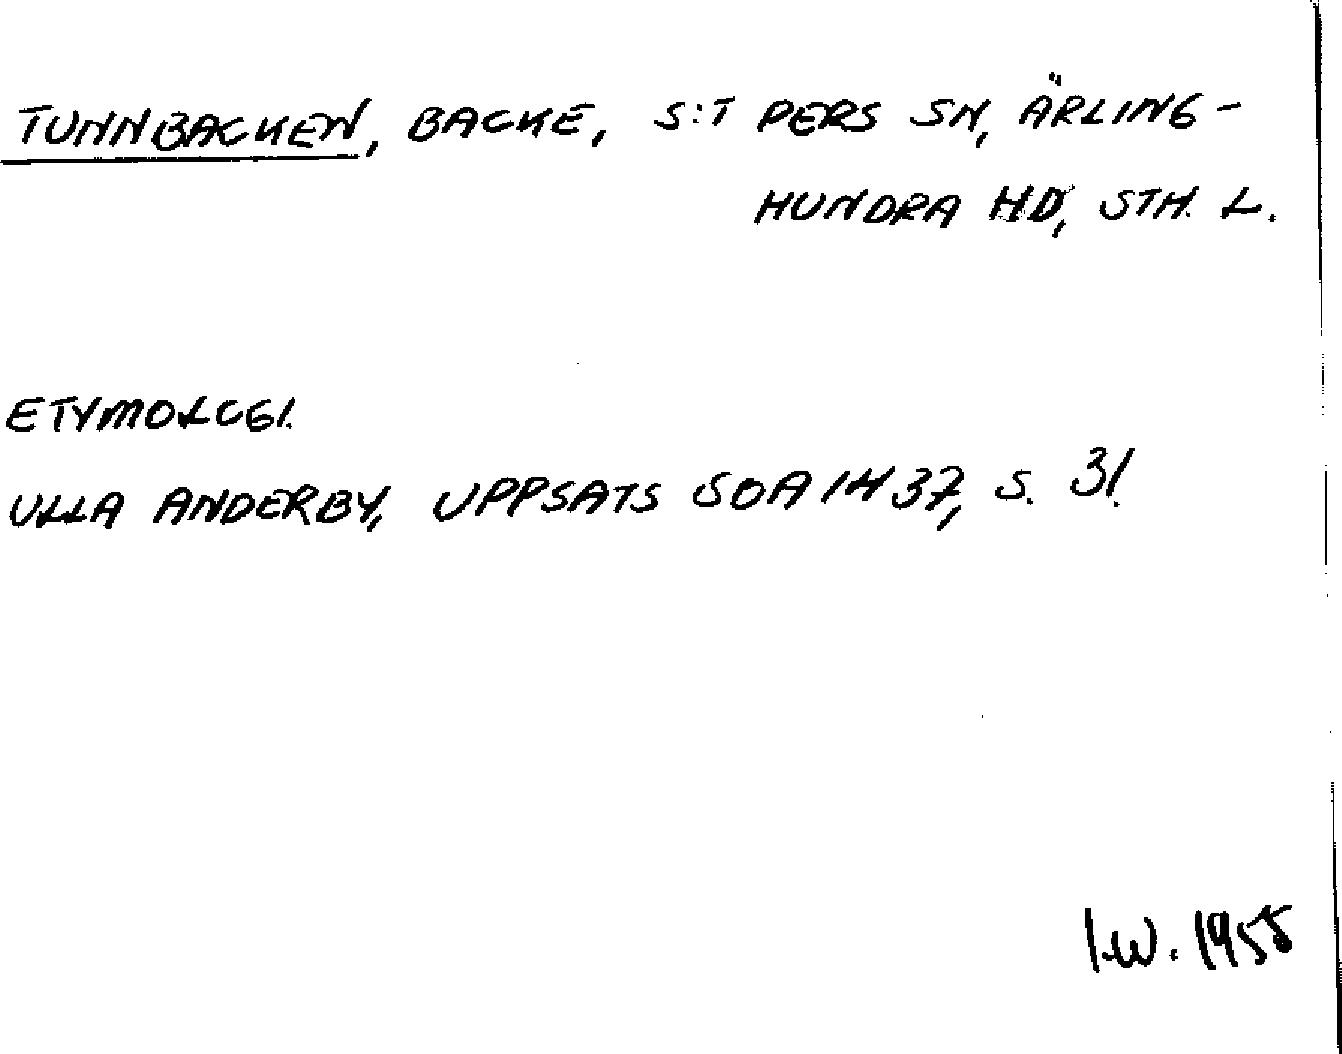 TUNNBACKEN, BACKE, S:T PERS SN, ÄRLING-
HUNDRA HD, STH. L.
ETYMOLOGI.
ULLA ANDERBY, UPPSATS SOA 1437, S. 31.
I.W. 1955